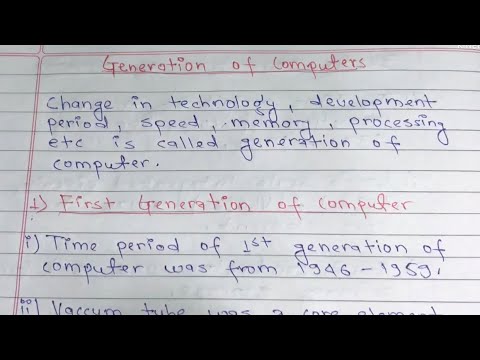 Generation of Computers
Change in technology, development
period, speed, memory, processing
etc is called generation of
computer.
1) First Generation of computer
i) Time period of 1st generation of
computer was from 1946 - 1959.
ii) Vaccum tube was a core element